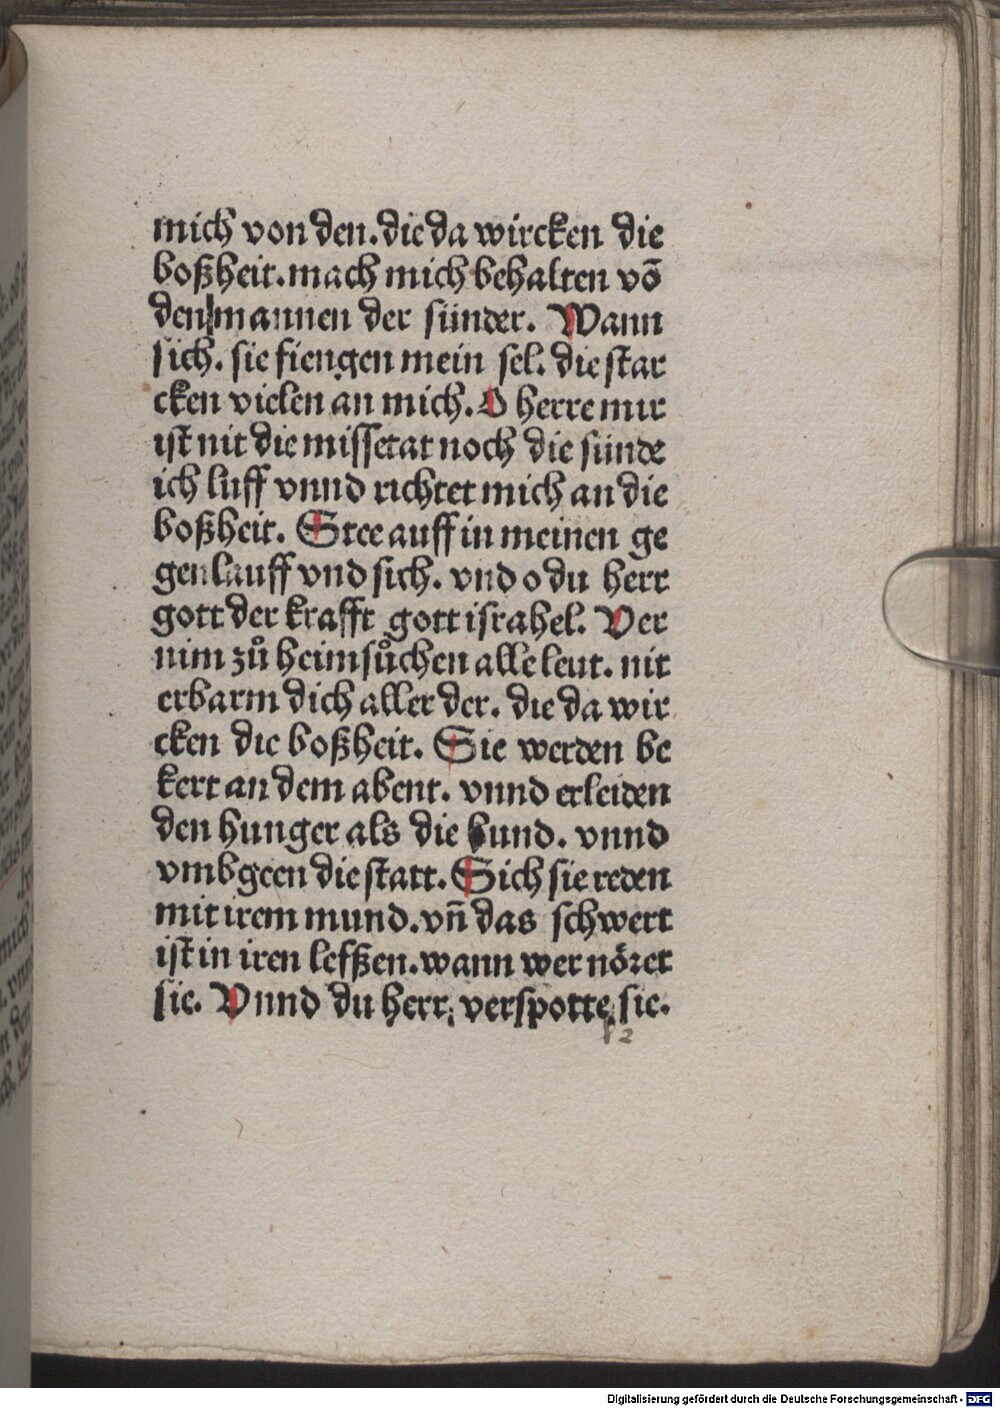 mich von den. die da wircken die
boßheit. mach mich behalten vō
den mannen der sünder. Wann
sich. sie fiengen mein sel. die star
cken vielen an mich. O herre mir
ist nit die missetat noch die sünde
ich luff vnnd richtet mich an die
boßheit. Stee auff in meinen ge
genlauff vnd sich. vnd o du herr
gott der krafft gott israhel. Ver
nim zů heimsůchen alle leut. nit
erbarm dich aller der. die da wir
cken die boßheit. Sie werden be
kert an dem abent. vnnd erleiden
den hunger als die hund. vnnd
vmbgeen die statt. Sich sie reden
mit irem mund. vn̄ das schwert
ist in iren lefßen. wann wer nöret
sie. Vnnd du herr, verspotte sie.
Digitalisierung gefördert durch die Deutsche Forschungsgemeinschaft - DFG